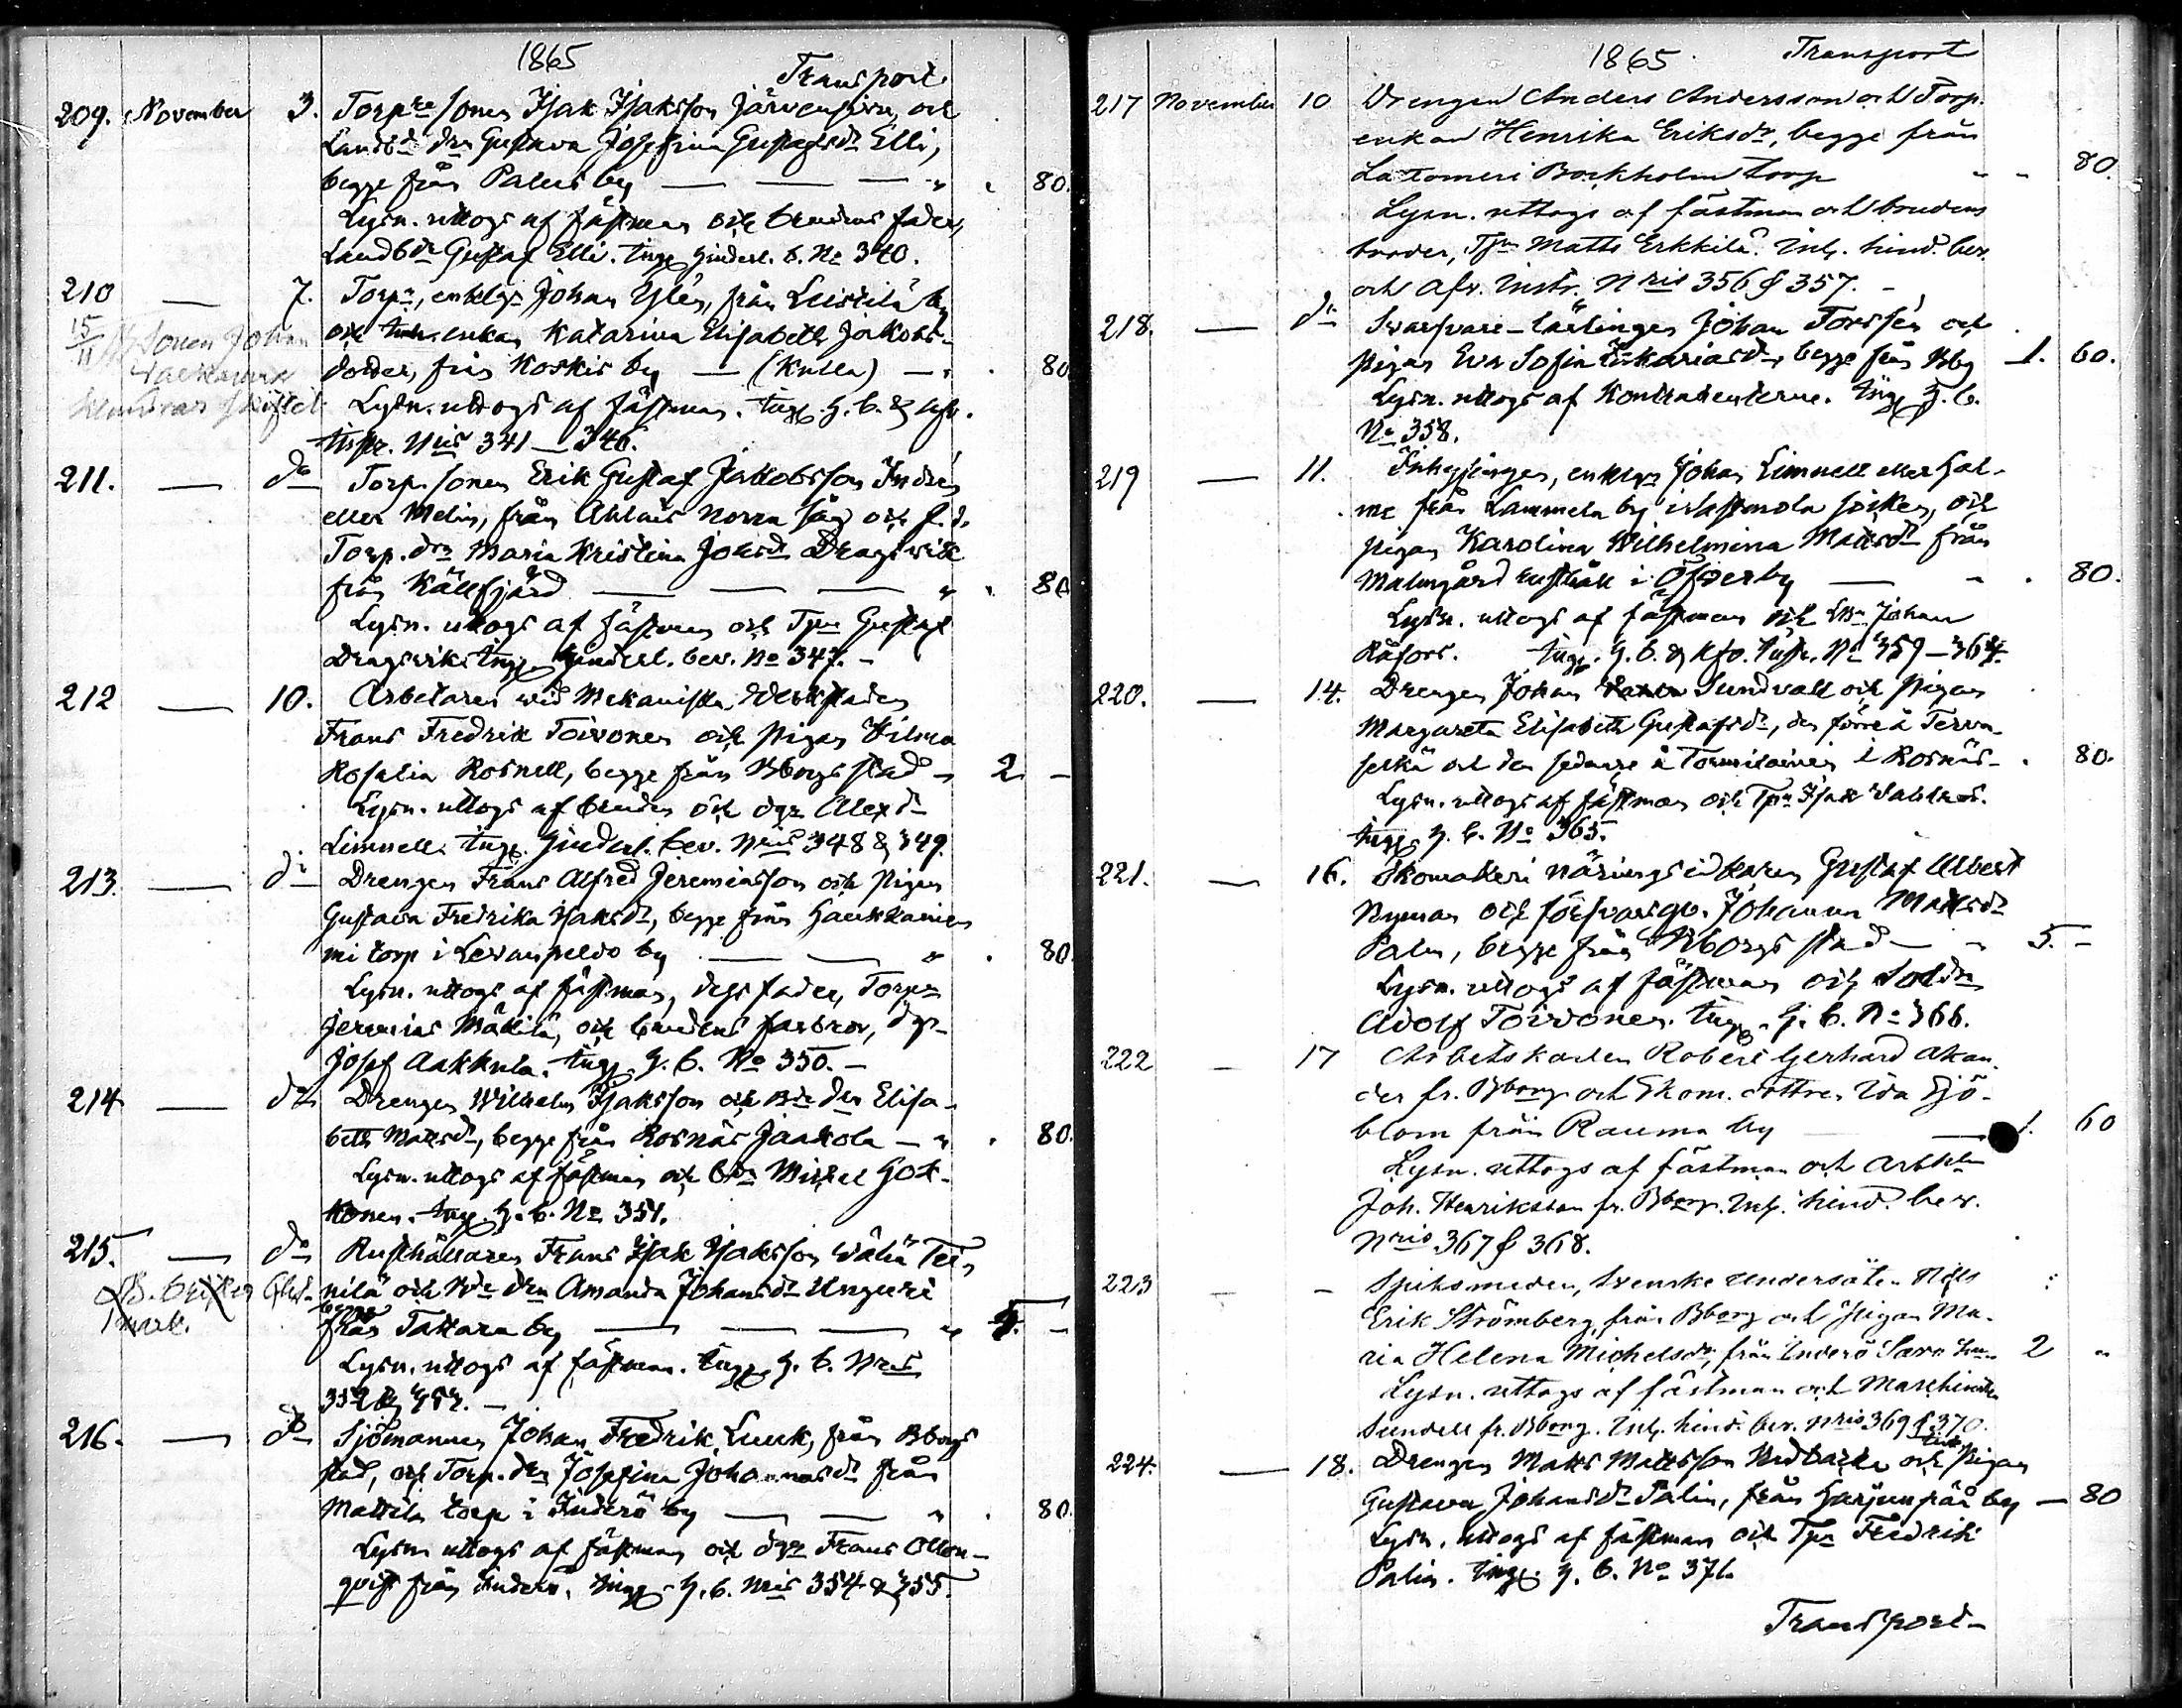 1865
Transport
209. November 3. Torpre sonen Isak Isaksson Järvensivu, och
Landbde dn Gustava Josefina Gustafsdr Elli,
begge från Palus by — — — " . 80.
Lysn. uttogs af fästman och brudens fader,
Landbdn Gustaf Elli. Ingg hinderl. b. No 340.
210 — 7. Torpn, enklgn Johan Ylén, från Leistilä by
och enkan Katarina Elisabeth Jakobs-
dotter, från Koskis by — (Kulla) — " . 80
15/11 Sonen Johan
Lysn. uttogs af fästman. Ingg. h. b. & afv.
instr. Nris 341 — 346.
211. — do Torp. sonen Erik Gustaf Jakobsson Indrén
eller Melin, från Ahlais Norra såg och f. d.
Torp. drn Maria Kristina Johsdr Dragsvik
från Källfjärd — — — " . 80
Lysn. uttogs af fästman och Tpn Gustaf
Dragsvik. Ingg. hinderl. bev. No 347. –
212 — 10. Arbetaren vid Mekaniska Verkstaden
Frans Fredrik Toivonen och pigan Hilma
Rosalia Rosnell, begge från Bborgs stad – 2 –
Lysn. uttogs af bruden och dgn Alexdr
Limnell. Ingg. hinderl. bev. Nris 348 & 349.
213. — do Drengen Frans Alfred Jeremiasson och pigan
Gustava Fredrika Isaksdr, begge från Haukkanie-
mi torp i Levanpeldo by — — " . 80.
Lysn. uttogs af fästman, dess fader, Torpn
Jeremias Mäkilä, och brudens farbror, dgn
Josef Aakkula. Ingg. h. b. No 350. –
214 — do Drengen Wilhelm Isaksson och Bde drn Elisa-
beth Mattsdr, begge från Rosnäs Jaakola — " . 80.
Lysn. uttogs af fästman och bdn Mickel Hok-
konen. Ingg. h. b. No 351.
215. — do Rusthållaren Frans Isak Isaksson Wähä Tei-
nilä och Bde drn Amanda Johansdr Unguri
begge
från Tattara by — — — " 4. –
mark.
Lysn. uttogs af fästman. Ingg. h. b. Nris
352 & 353. –
216. — do Sjömannen Johan Fredrik Luuk, från Bborgs
stad, och Torp. drn Josefina Johannesdr från
Mattila torp i Inderö by — — " . 80.
Lysn. uttogs af fästman och dgn Frans Ollon-
qvist från Inderö. Ingg. h. b. nris 354 & 355.
1865. Transport
217 November 10 Drengen Anders Andersson och Torp.
enkan Henrika Eriksdr, begge från
Latomeri Bockholm torp " – 80.
Lysn. uttogs af fästman och brudens
broder, Tpn Matts Erkkilä. Inl. hind. bev.
och afv. instr. Nris 356 & 357. –
218. — do Svarfvare-lärlingen Johan Forssén och
pigan Eva Sofia Zakariasdr, begge från Bbg 1. 60.
Lysn. uttogs af Kontrahenterne. Ingg h. b.
No 358.
219 — 11. Inhysingen, enklgn Johan Limnell eller Hol-
me från Lammela by i Lastmola socken, och
pigan Karolina Wilhelmina Mattsdr från
Malmgård rusthåll i Öfverby — " . 80.
Lysn. uttogs af fästman och LBn Johan
Råfors. Ingg. h. b. & afv. instr. No 359 – 364.
220. — 14. Drengen Johan Sundvall och pigan
Margareta Elisabeth Gustafsdr, den förre å Terva-
selkä och den sednare å Tommilainen i Rosnäs – . 80.
Lysn. uttogs af fästman och Tpn Isak Wahlroos.
Ingg. h. b. No 365.
221. — 16. Skomakeri näringsidkaren Gustaf Albert
Nyman och försvarsqv. Johanna Mattsdr
Palm, begge från Bborgs stad – " 5. –
Lysn. uttogs af fästman och Soldn
Adolf Toivonen. Ingg. h. b. No 366.
222 – 17 Arbetskarlen Robert Gerhard Akan-
der fr. Bborg och Skom. dottren Ida Sjö-
blom från Rauma by — 1. 60
Lysn. uttogs af fästman och arbkln
Joh. Henriksson fr. Bborg. Inl. hind. bev.
Nris 367 & 368.
223 – – Spiksmeden, Svenske undersåten Nils
Erik Strömberg från Bborg och pigan Ma-
ria Helena Michelsdr, från Inderö 2 "
Lysn. uttogs af fästman och Maschinisten
Sundell fr. Bborg. Inl. hind. bev. nris 369 & 370.
224. — 18. Drengen Matts Mattsson Nedbacka och pigan
Gustava Johansdr Palin, från Harjunpää by — 80
Lysn. uttogs af fästman och Tpn Fredrik
Palin. Ingg. h. b. No 371.
Transport –